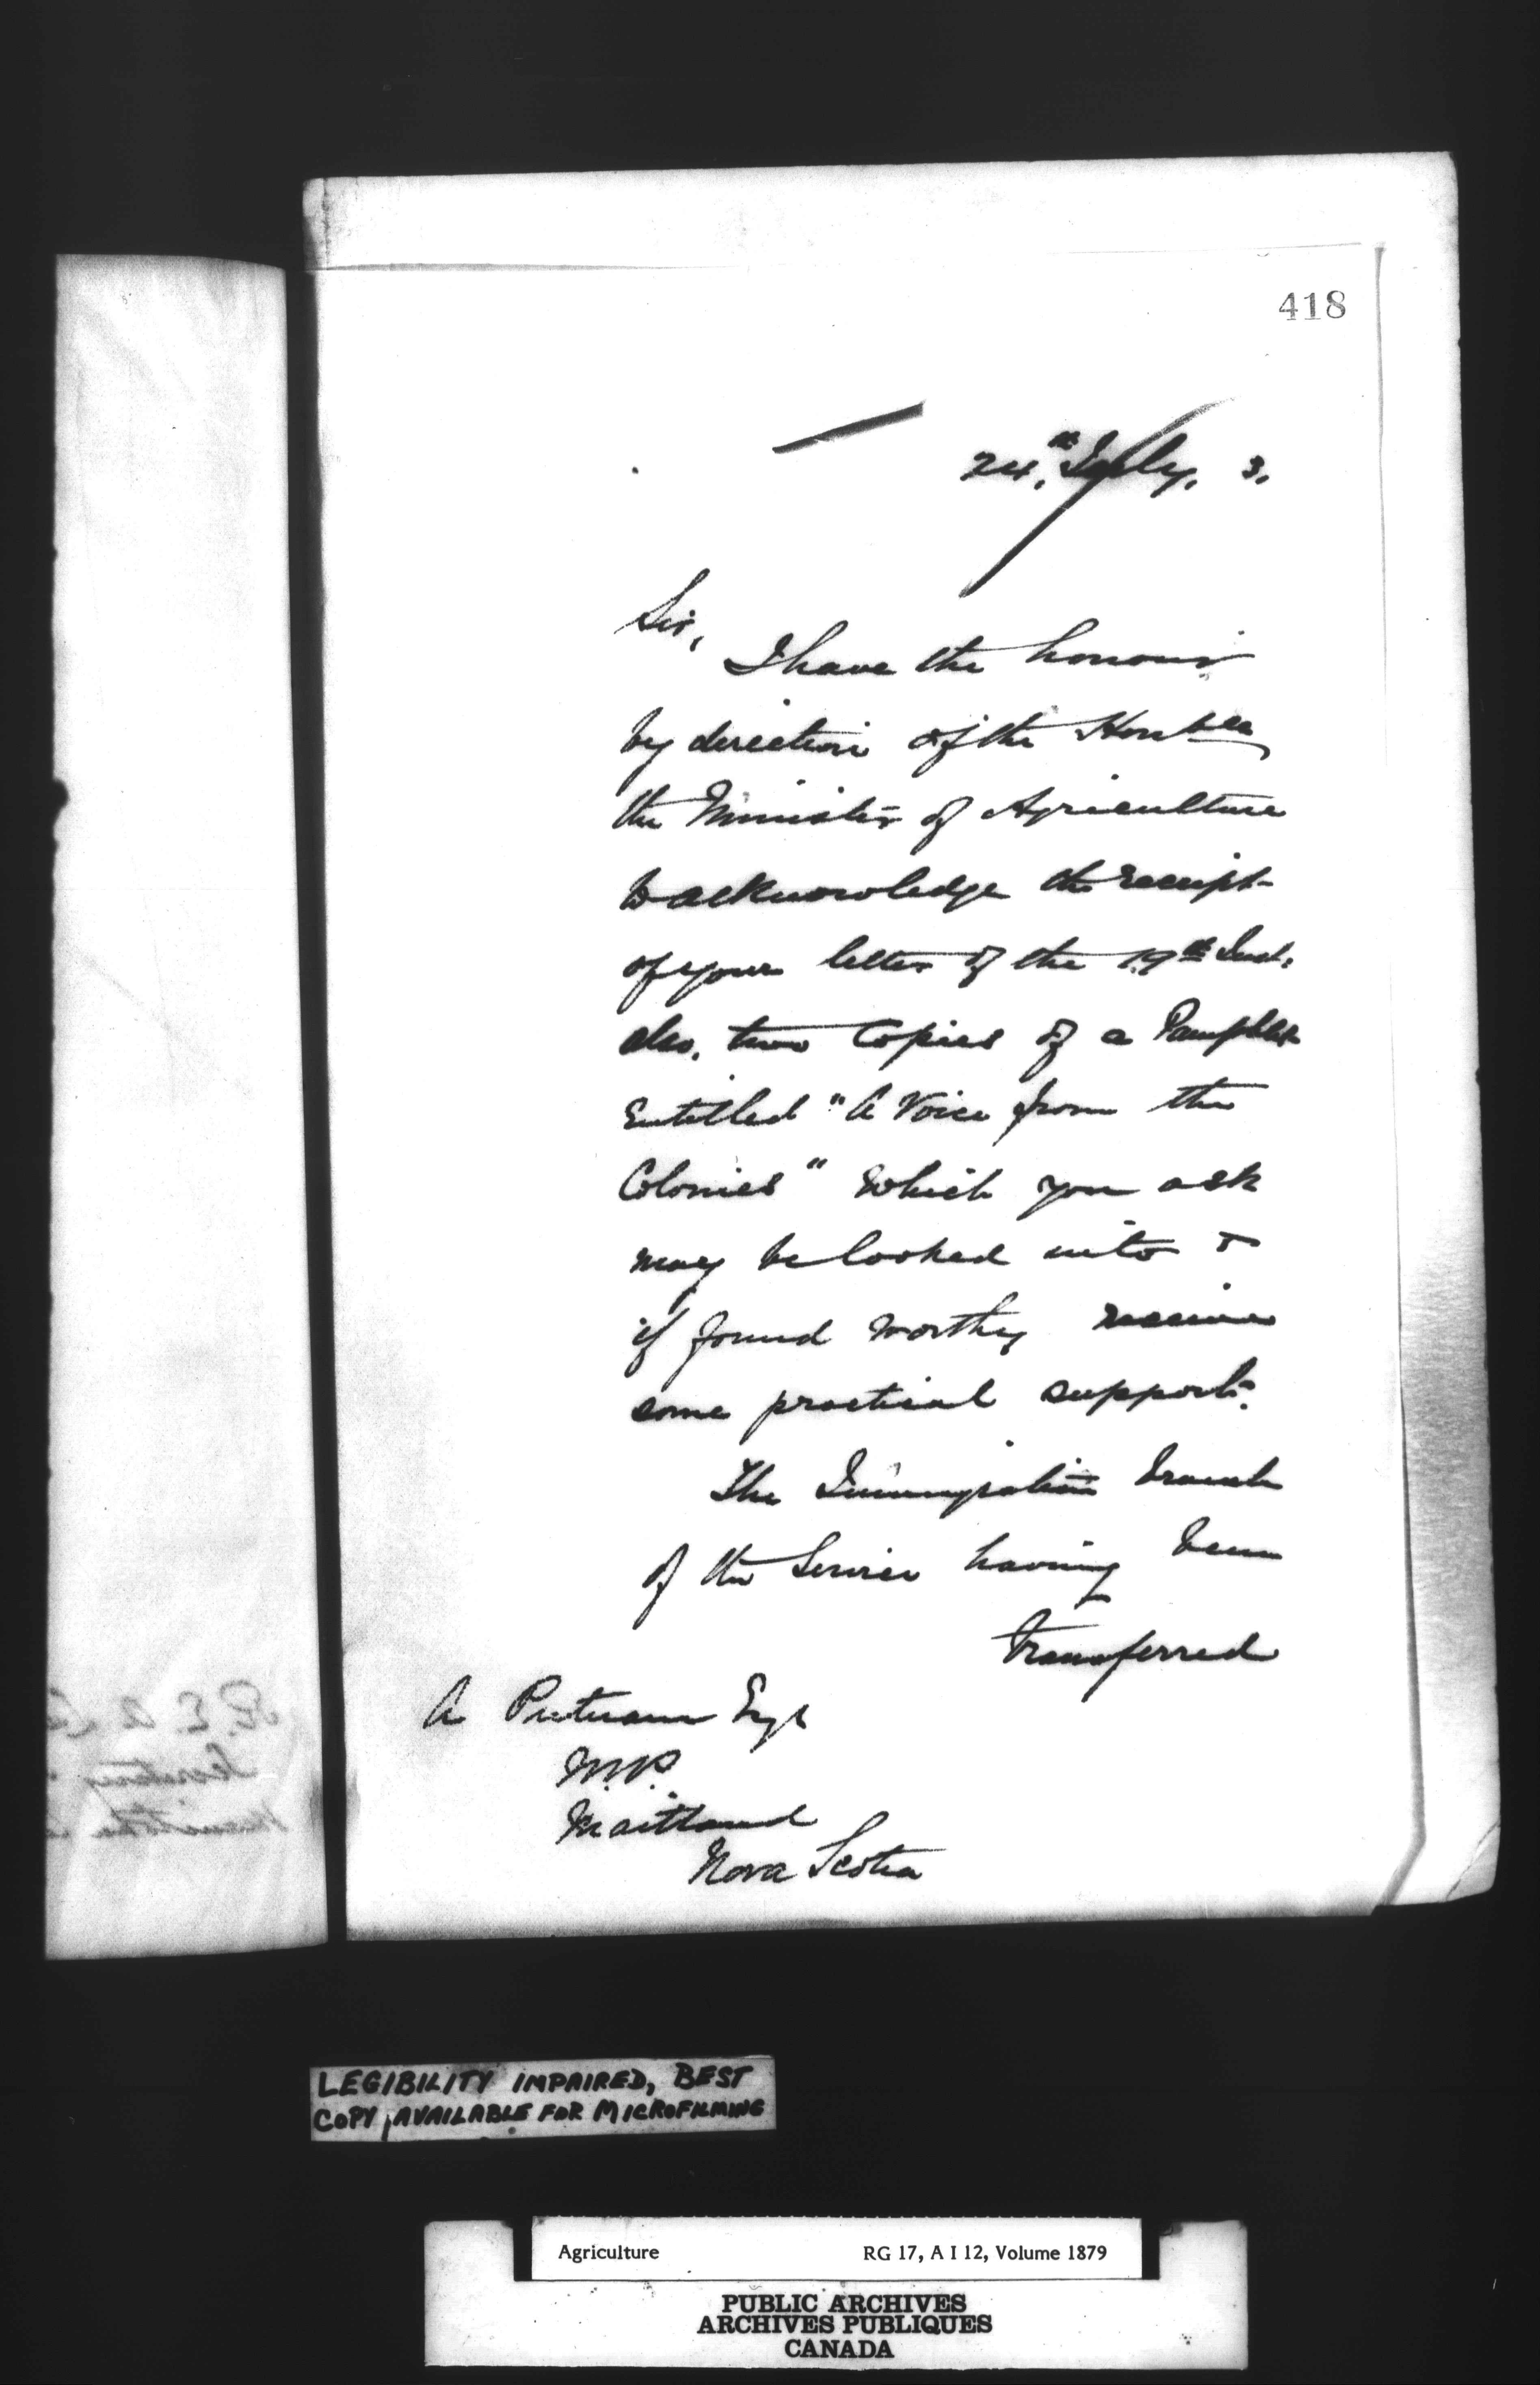 418
24th July, 3.
Sir,
I have the honour
by direction of the Honble
the Minister of Agriculture
to acknowledge the receipt
of your letter of the 19th Inst.
also, two Copies of a Pamphlet
Entitled "A Voice from the
Colonies" which you ask
may be looked into &
if found worthy receive
some practical support.
The Immigration branch
of the Service having been
transferred
A Putnam Esqr
M.P.
Maitland
Nova Scotia
LEGIBILITY IMPAIRED, BEST
COPY AVAILABLE FOR MICROFILMING
Agriculture RG 17, A I 12, Volume 1879
PUBLIC ARCHIVES
ARCHIVES PUBLIQUES
CANADA